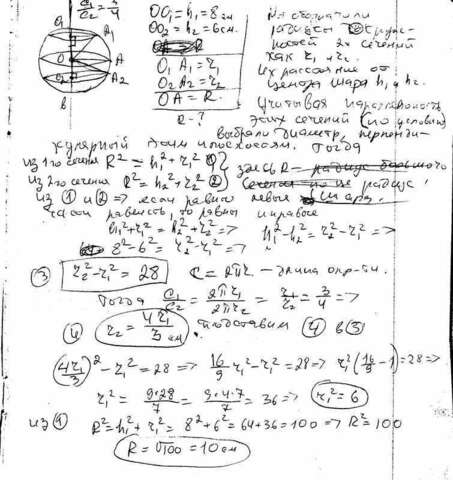 C₁/C₂ = 3/4
OO₁ = h₁ = 8 см
OO₂ = h₂ = 6 см.
O₁A₁ = r₁
O₂A₂ = r₂
OA = R.
R - ?
O₁
A₁
O
A
O₂
A₂
B
Мы обозначили
радиусы окруж-
ностей 2х сечений
как r₁ и r₂.
Их расстояние от
центра шара h₁ и h₂.
Учитывая параллельность
этих сечений (по условию)
выбрали диаметр, перпенди-
кулярный этим плоскостям. Тогда
из 1го сечения R² = h₁² + r₁² ①
из 2го сечения R² = h₂² + r₂² ②
здесь R - радиус шара.
из ① и ② => если равны левые
части равенств, то равны и правые
h₁² + r₁² = h₂² + r₂² => h₁² - h₂² = r₂² - r₁² =>
8² - 6² = r₂² - r₁² =>
③ r₂² - r₁² = 28 C = 2πr - длина окр-ти.
Тогда C₁/C₂ = 2πr₁/2πr₂ = r₁/r₂ = 3/4 =>
④ r₂ = 4r₁/3 см. подставим ④ в ③
(4r₁/3)² - r₁² = 28 => 16/9 r₁² - r₁² = 28 => r₁² (16/9 - 1) = 28 =>
r₁² = 9·28/7 = 9·4·7/7 = 36 => r₁² = 6
из ① R² = h₁² + r₁² = 8² + 6² = 64 + 36 = 100 => R² = 100
R = √100 = 10 см